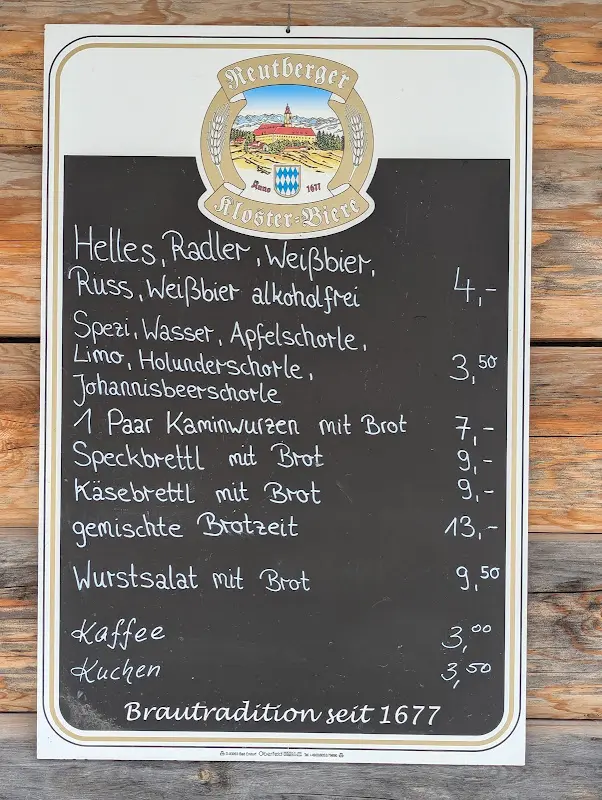 Reutberger
Anno 1677
Kloster-Biere
Helles, Radler, Weißbier,
Russ, Weißbier alkoholfrei 4,-
Spezi, Wasser, Apfelschorle,
Limo, Holunderschorle, 3,50
Johannisbeerschorle
1 Paar Kaminwurzen mit Brot 7,-
Speckbrettl mit Brot 9,-
Käsebrettl mit Brot 9,-
gemischte Brotzeit 13,-
Wurstsalat mit Brot 9,50
Kaffee 3,00
Kuchen 3,50
Brautradition seit 1677